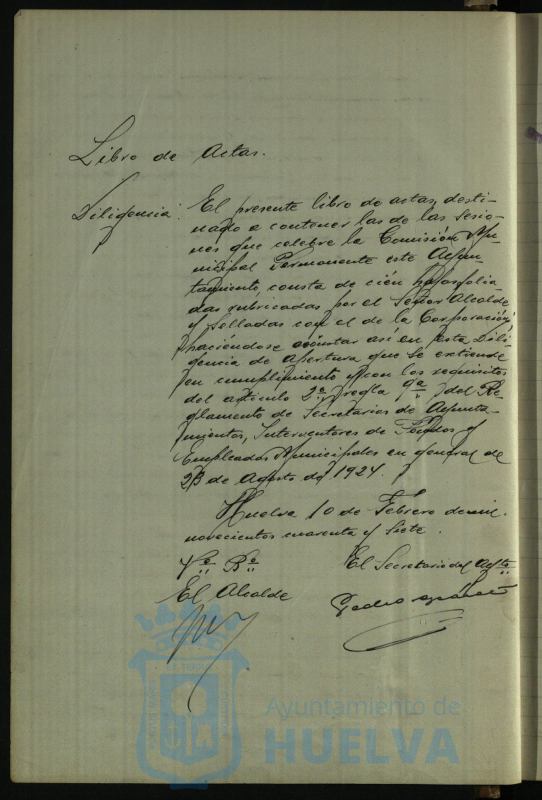 Libro de Actas.
Diligencia: El presente libro de actas, desti-
nado a contener las de las sesio-
nes que celebre la Comisión Mu-
nicipal Permanente este Ayun-
tamiento, consta de cién hojas folia-
das rubricadas por el Señor Alcalde
y selladas con el de la Corporación,
haciéndose constar así en esta Dili-
gencia de apertura que se extiende
en cumplimiento y con los requisitos
del artículo 2º, regla 9ª, del Re-
glamento de Secretarios de Ayunta-
mientos, Interventores de Fondos y
Empleados Municipales en general de
23 de Agosto de 1924.
Huelva 10 de Febrero de mil
novecientos cuarenta y siete.
Vº Bº El Secretario del Aytº
El Alcalde
Pedro
Ayuntamiento de
HUELVA